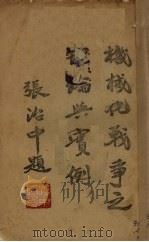 機械化戰爭之
理論與實例
張治中題